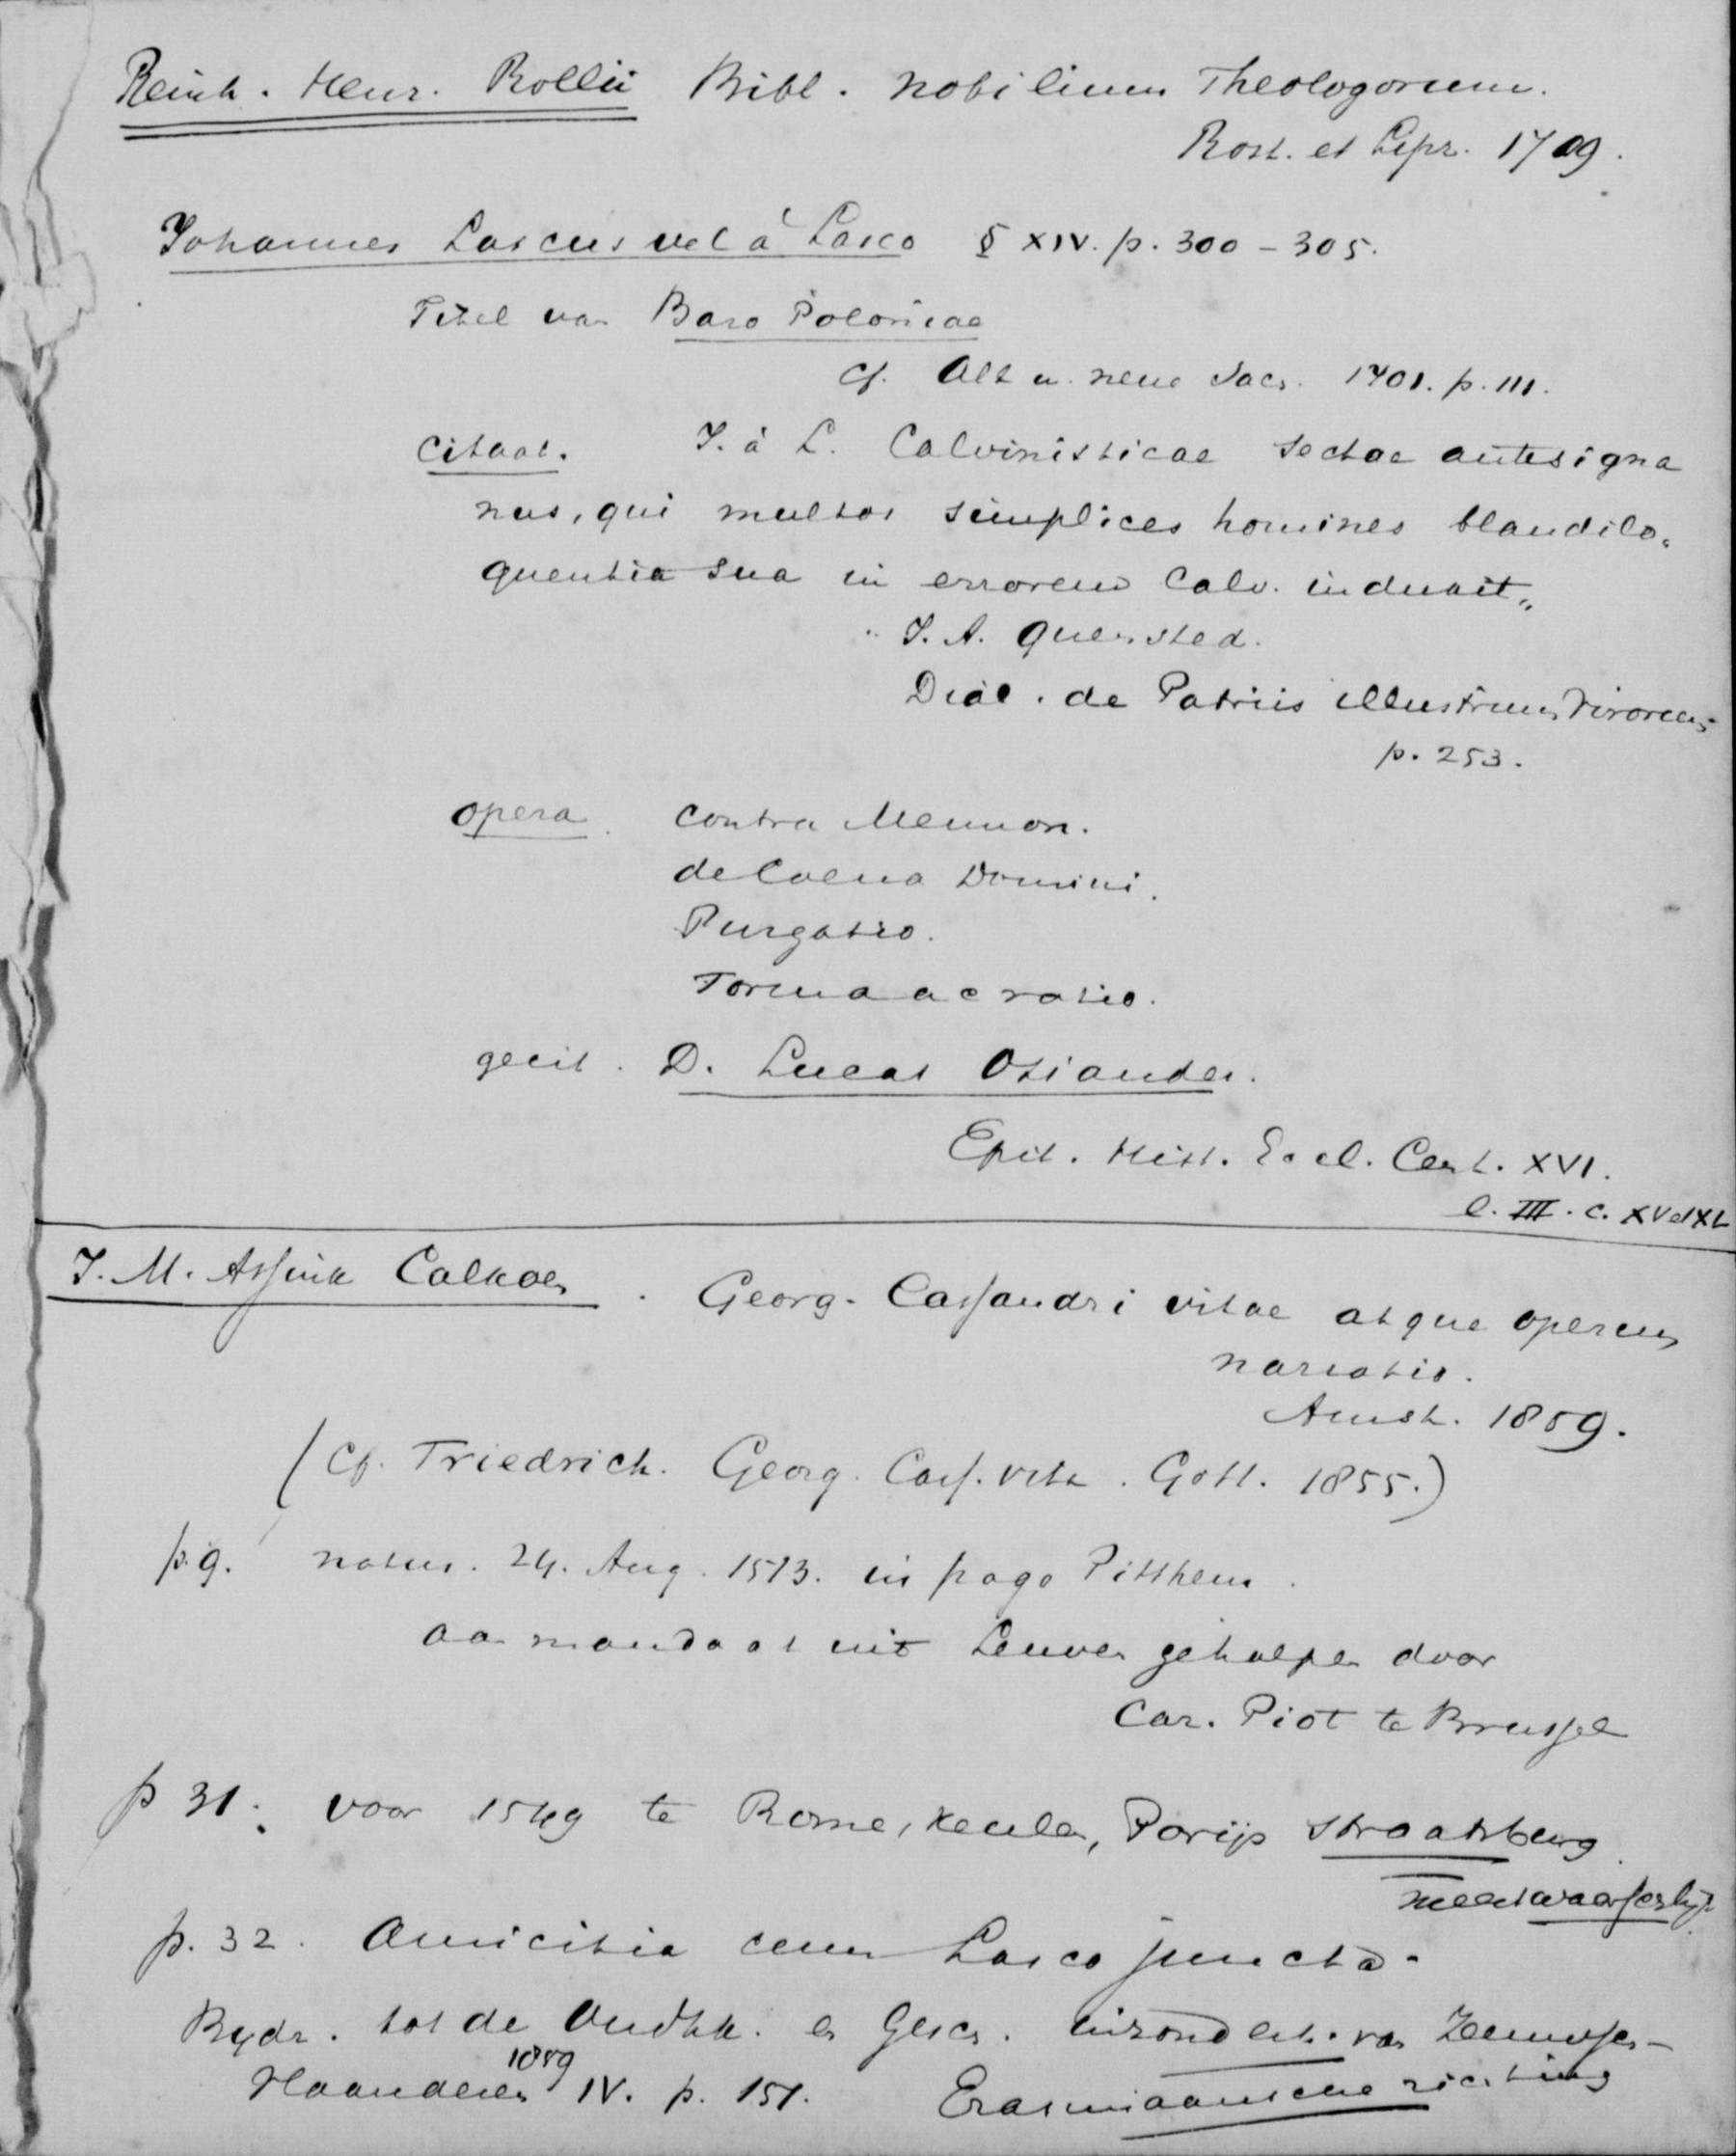 Reinh. Henr. Rollii Bibl. nobilium Theologorum.
Rost. et Lips. 1709.
Johannes Lascus vel á Lasco § XIV. p. 300-305.
Titel van Baro Poloniae
cf. Alt u. neue Sacr. 1701. p. 111.
Citaat. J. á L. Calvinisticae sectae antesigna
nus, qui multos simplices homines blandilo„
quentia sua in errorem Calv. induxit„
J. A. Quensted.
Dial. de Patriis illustrium Virorum
p. 253.
opera. contra Mennon.
de Coena Domini.
Purgatio.
Forma ac ratio.
gecit. D. Lucas Osiander.
Epit. Hist. Eccl. Cent. XVI.
l. III. c. XV et XL
J. M. Assink Calkoen. Georg. Cassandri vitae atque operum
narratio.
Amst. 1859.
(Cf. Friedrich. Georg. Cass. vita. Gott. 1855.)
p. 9. natus. 24. Aug. 1513. in pago Pitthem.
aan mandaat uit Leuven geholpen door
Car. Piot te Brussel
p 31. voor 1549 te Rome, Keulen, Parijs Straatsburg.
p. 32. Amicitia cum Lasco juncta.
Bydr. tot de Oudhk. en Gesch. inzonderh. van Zeeuwsch-
Vlaanderen 1859 IV. p. 151. Erasmiaansche richting